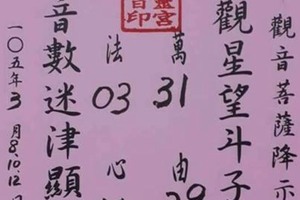 觀音菩薩降示
觀星望斗子
萬31由
法03心
音數迷津顯
一〇五年3月8.10.12日